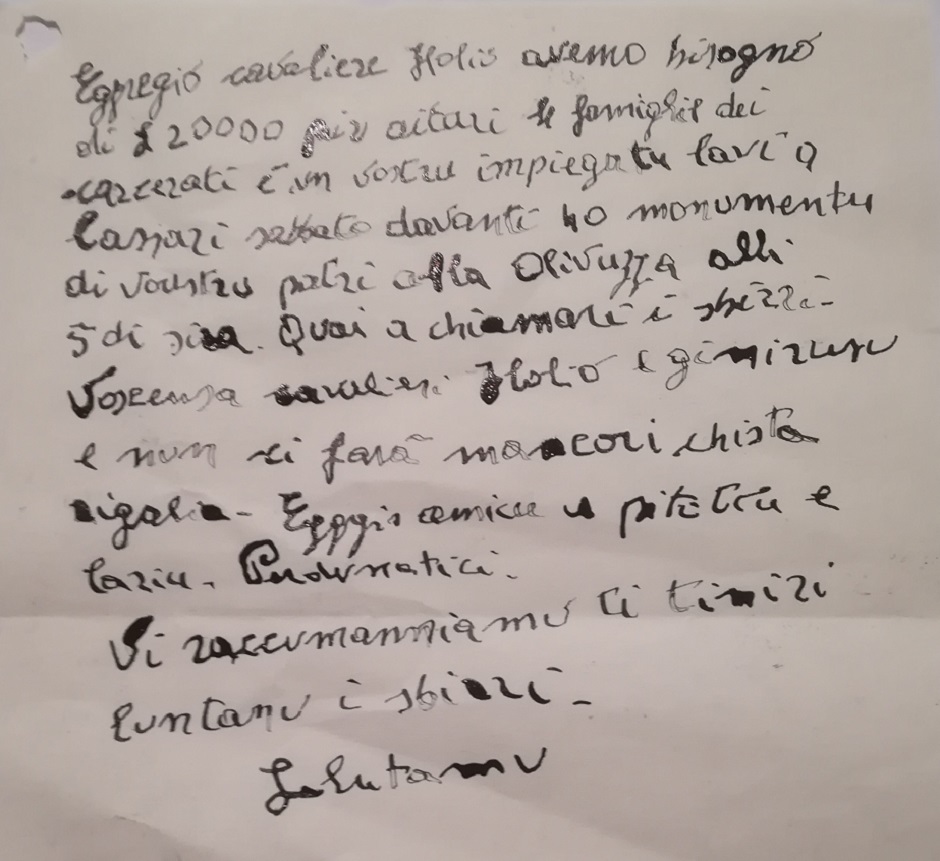 Egpregio cavaliere Florio avemo bisogno
di £ 20000 pir aitari le famiglie dei
carcerati e un vostru impiegatu lavi a
lassari sabbato davanti lo monumentu
di vostru patri alla Olivuzza alli
5 di sira. Quai a chiamari i sbirri -
Vossenza cavaleri Florio è ginirusu
e nun ci farà mancari chista
rigalia - amicu u e
Vi raccumanniamu ti tiniri
luntanu i sbirri -
Salutamu